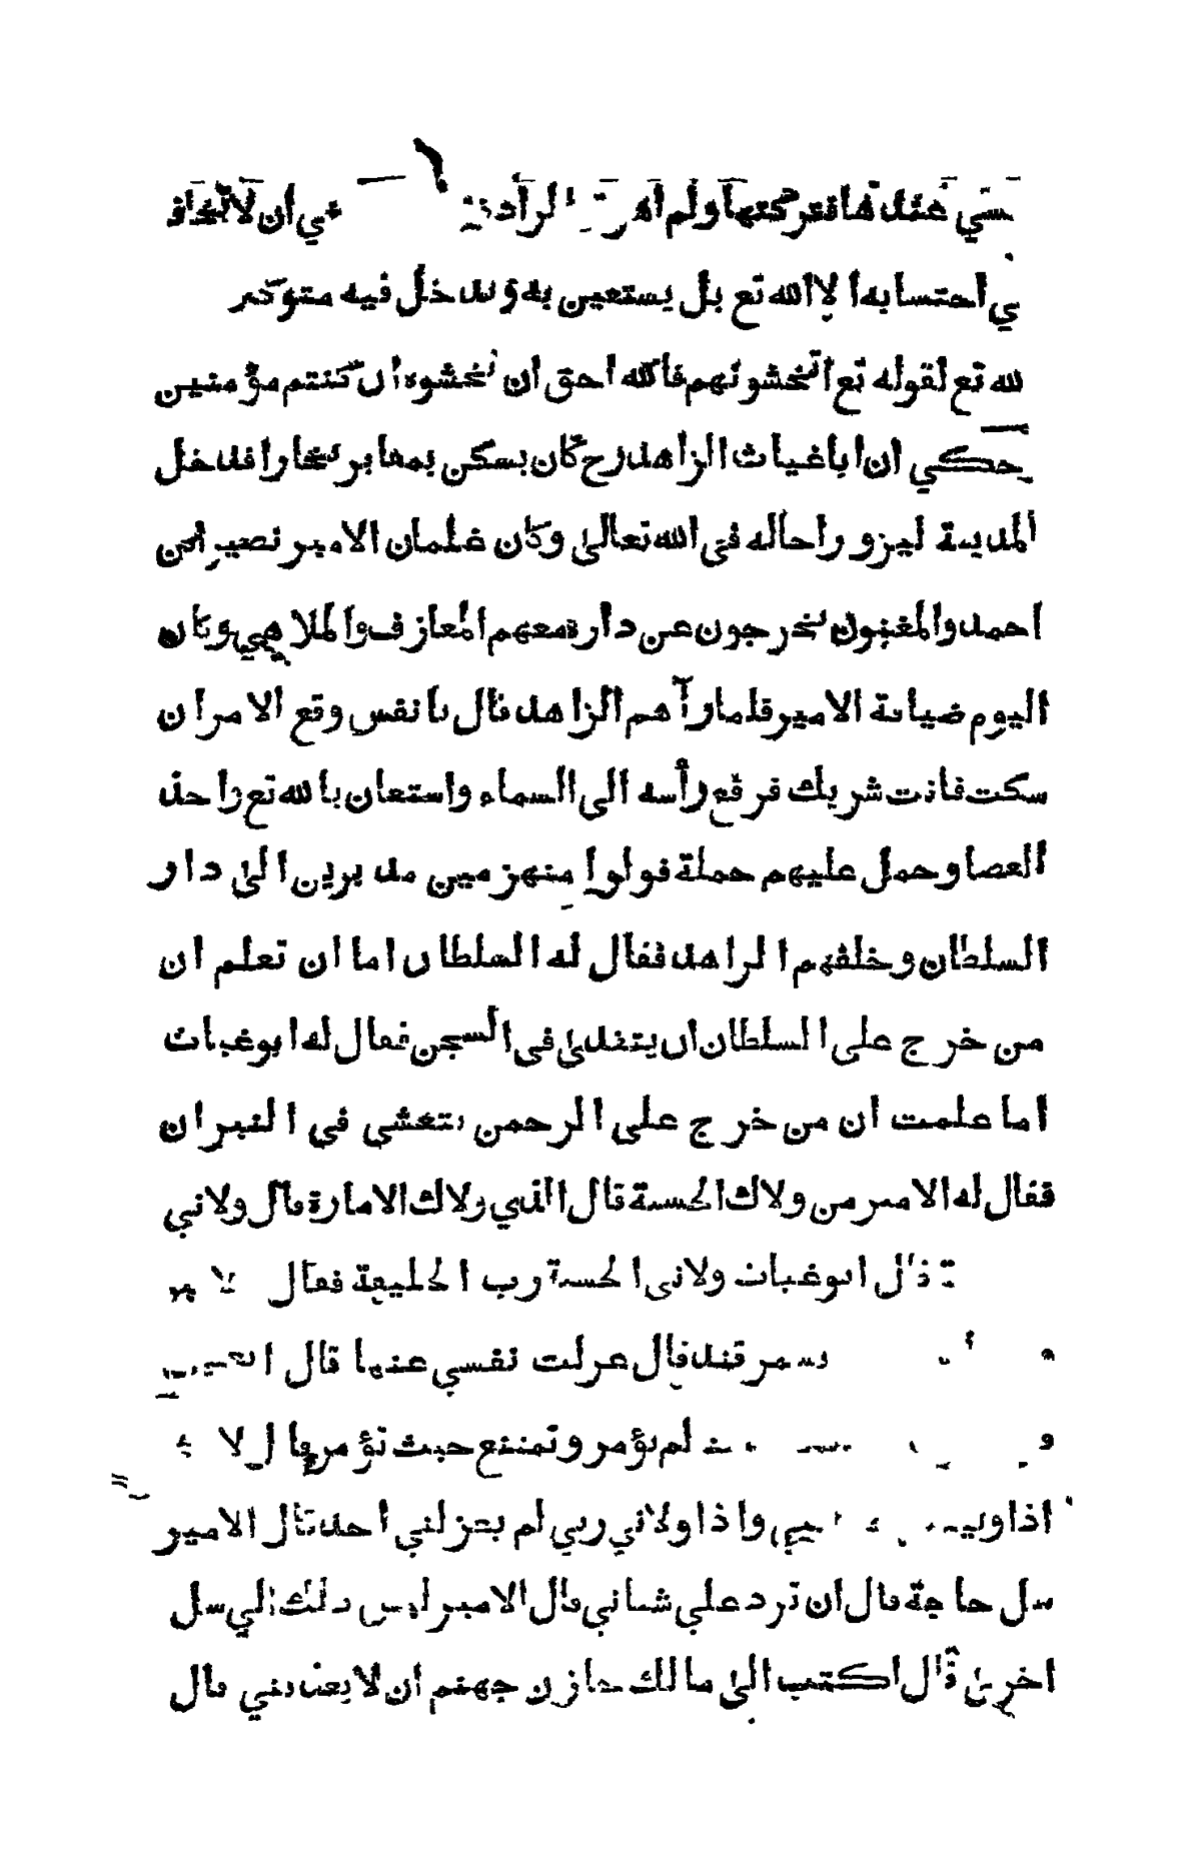 عندها فتركتها ولم ان لا تخاف
في احتسابه الا الله تع بل يستعين به ويدخل فيه متوكلا
لله تع لقوله تع اتخشونهم فالله احق ان تخشوه ان كنتم مؤمنين
حكي ان ابا غياث الزاهد رح كان يسكن بمقابر بخارا فدخل
المدينة ليزور اخاله في الله تعالى وكان غلمان الامير نصير بن
احمد والمغنيون يخرجون عن داره معهم المعازف والملاهي وكان
اليوم ضيافة الامير فلما رآهم الزاهد قال يا نفس وقع الامر ان
سكت فانت شريك فرفع رأسه الى السماء واستعان بالله تع واخذ
العصا وحمل عليهم حملة فولوا منهزمين مدبرين الى دار
السلطان وخلفهم الزاهد فقال له السلطان اما ان تعلم ان
من خرج على السلطان ان يتغدى في السجن فقال له ابو غياث
اما علمت ان من خرج على الرحمن يتعشى في النيران
فقال له الامير من ولاك الحسبة قال الذي ولاك الامارة قال ولاني
قال ابو غياث ولاني الحسبة رب الخليفة فقال
بسمرقند قال عزلت نفسي عنها قال
لم يؤمر وتمتنع حيث تؤمر قال لا
اذا واذا ولاني ربي لم يعزلني احد قال الامير
سل حاجة قال ان ترد علي شبابي قال الامير ليس ذلك الي سل
اخرى قال اكتب الى مالك خازن جهنم ان لا يعذبني قال